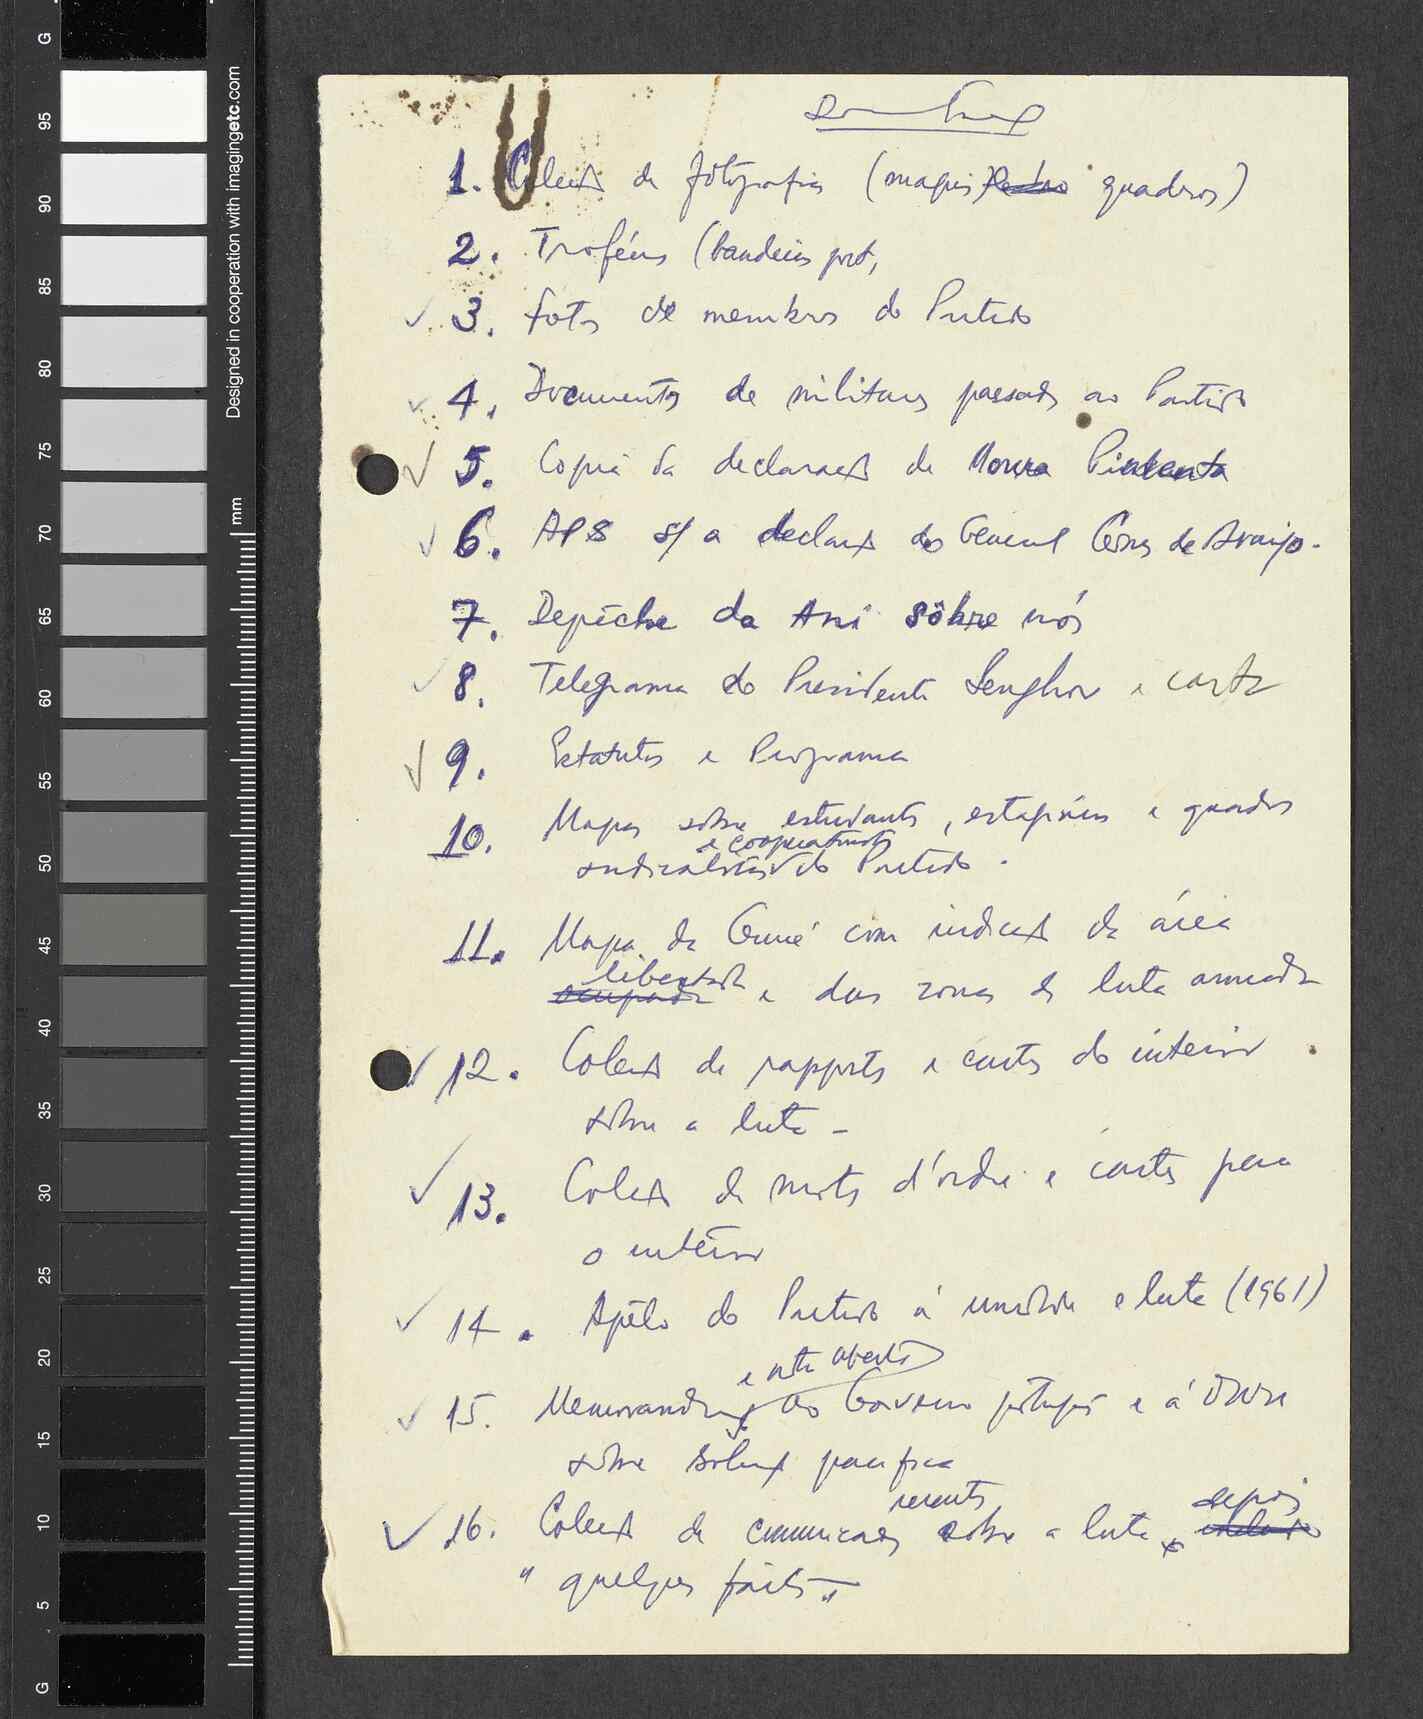 1. Colecã de fotografias (maquis) quadros)
2. Troféus (bandeiras port,
3. fotos de membros do Partido
4. Documentos de militares passados ao Partido
5. Copia da declaração de Moura Pimenta
6. APS s/ a declaração do General Arnaujo.
7. Depêche da Ani sôbre nós
8. Telegrama do Presidente Senghor e carta
9. Estatutos e Programa
10. Mapas sobre estudantes, estagiários e quadros
e cooperativistas
sindicalistas do Partido.
11. Mapa da Guiné com indicação da área
libertada
ocupada e das zonas de luta armada
12. Colecã de rapports e cartas do interior
sobre a luta -
13. Colecã de mots d'ordre e cartas para
o interior
14. Apêlo do Partido à unidade e luta (1961)
e nota aberta
15. Memorandum ao Governo português e à ONU
sobre solução pacifica
recentes depois
16. Colecã de comunicações sobre a luta
" quelques faits "
G
95
90
85
80
75
70
65
60
55
50
45
40
35
30
25
20
15
10
5
G
Designed in cooperation with imagingetc.com
mm